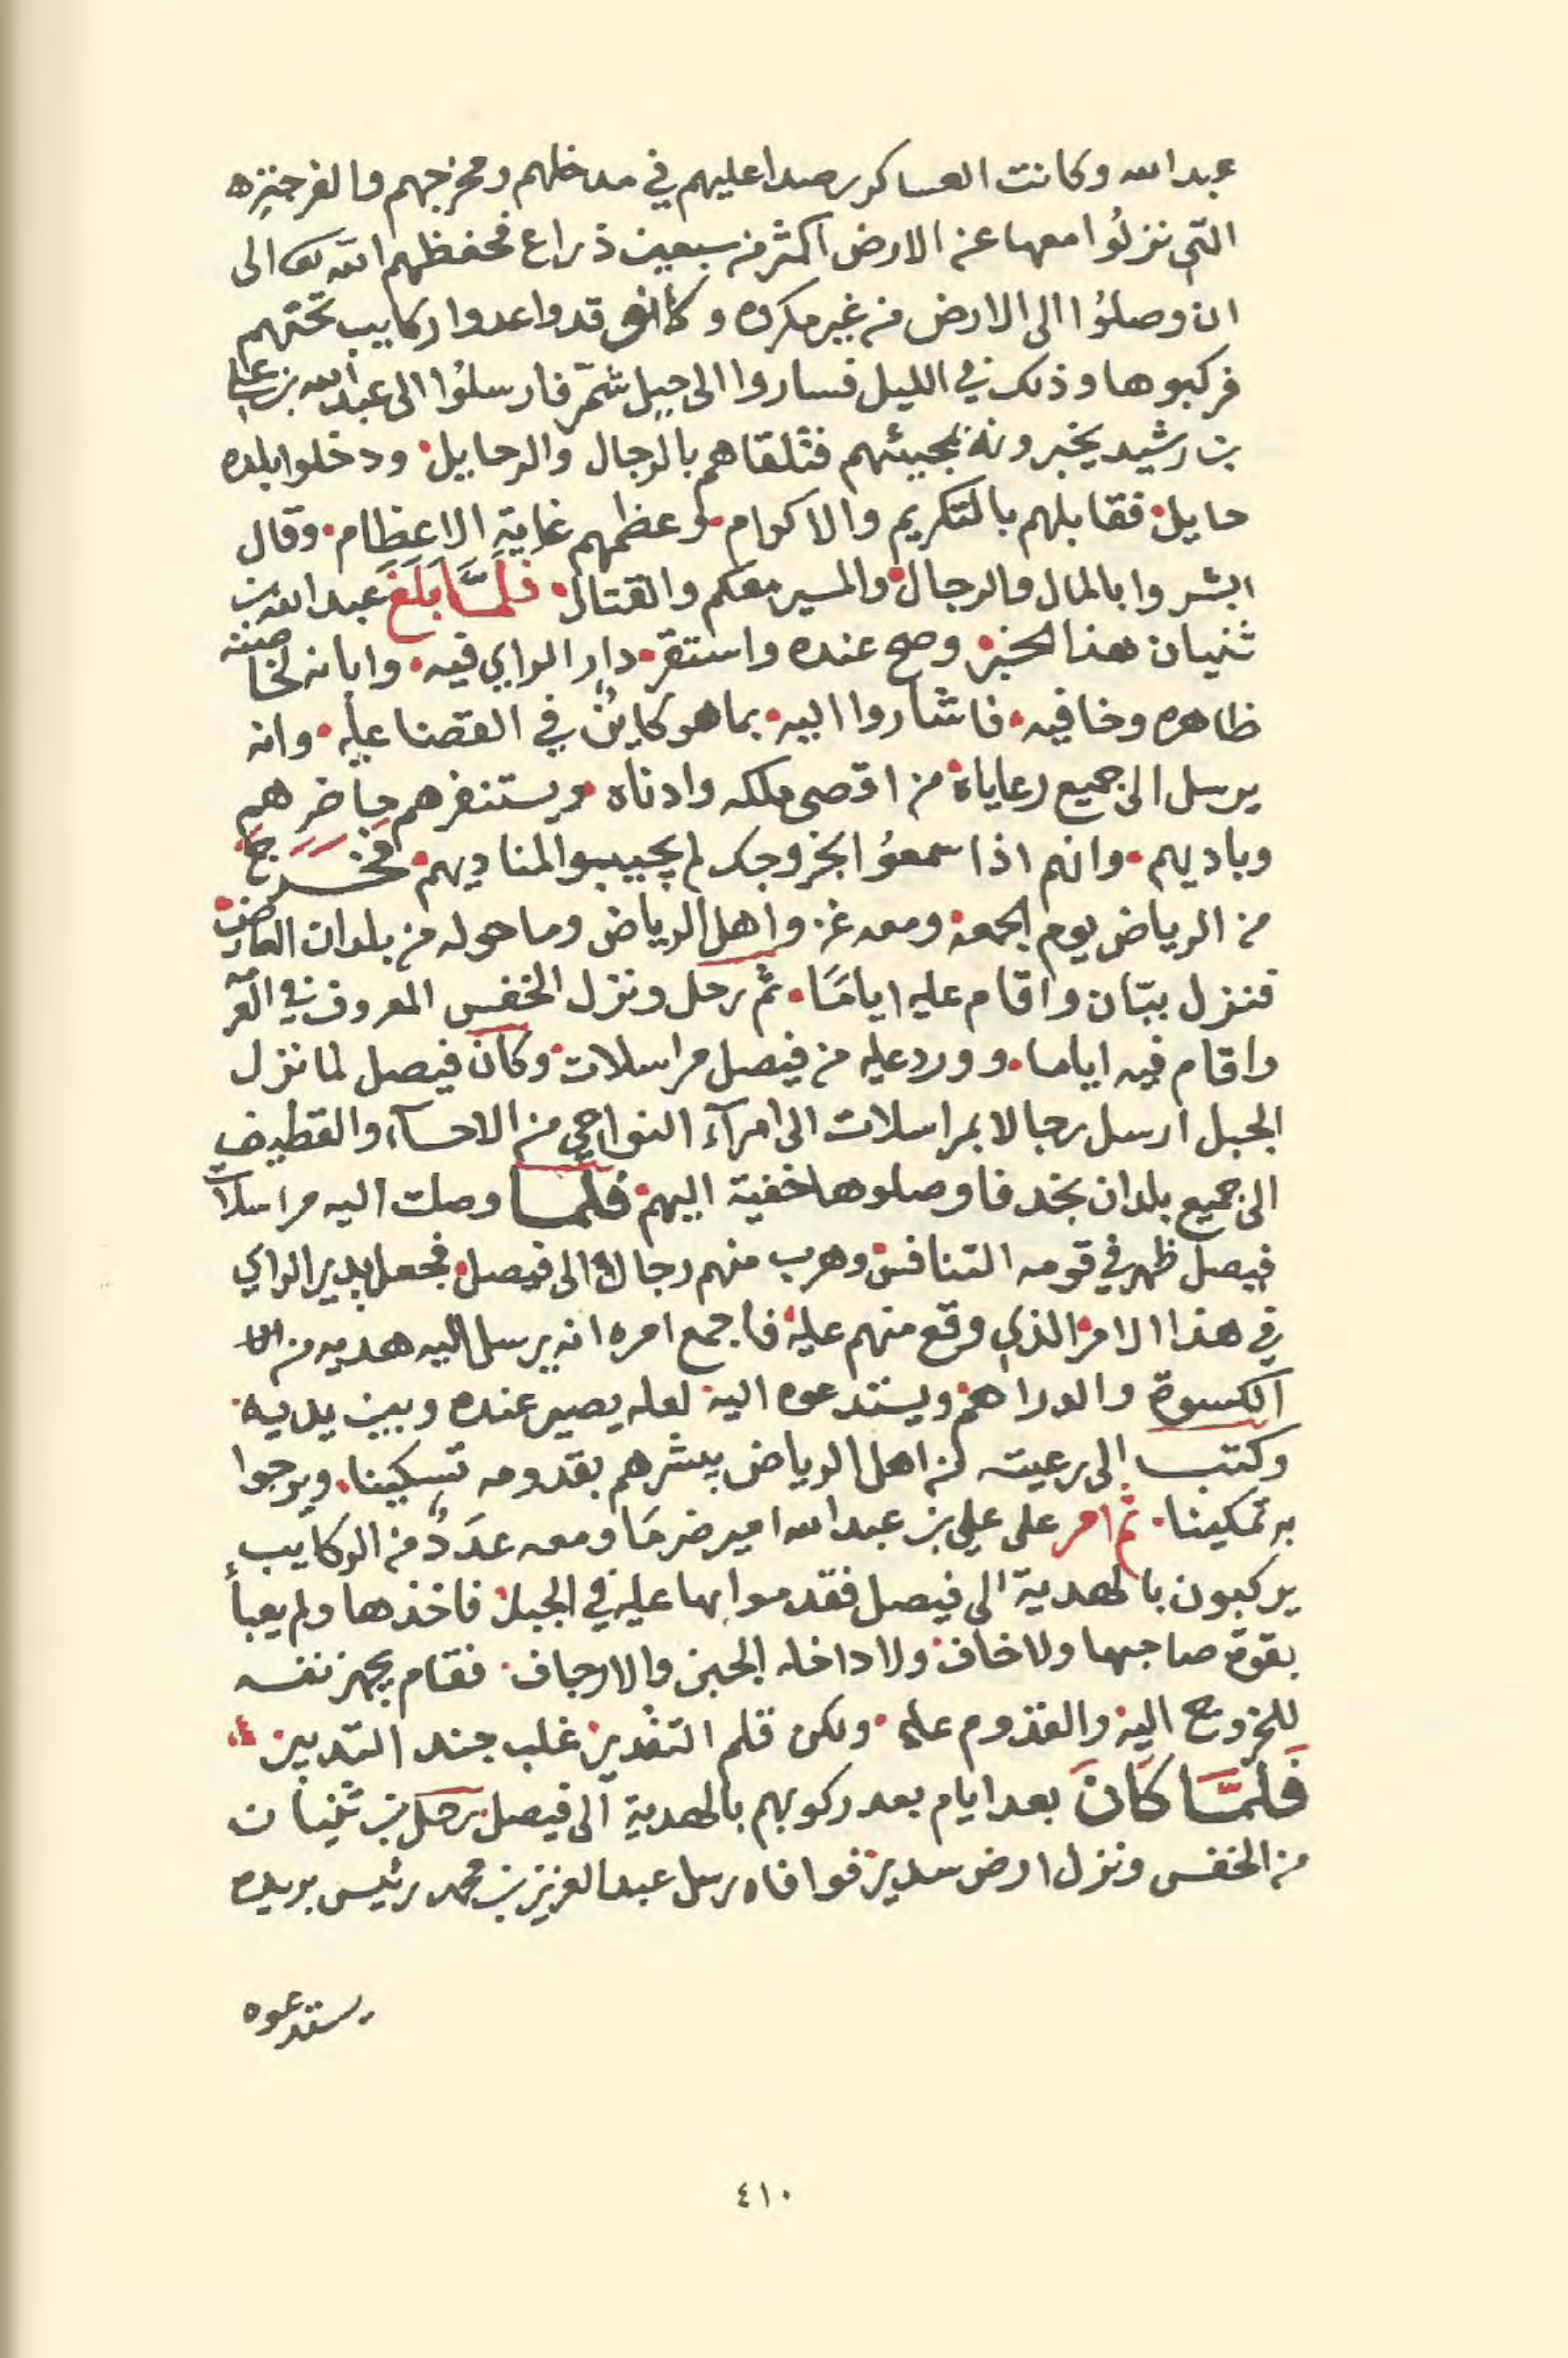 عبدالله وكانت العساكر رصدا عليهم في مدخلهم ومخرجهم والفرجة
التي نزلُوا معها عن الارض اكثر من سبعين ذراع فحفظهم الله تعالى
ان وصلُوا الى الارض من غير مكروه وكانوا قد واعدوا ركايب تحتهم
فركبوها وذلك في الليل فساروا الى جبل شمّر فارسلُوا الى عبدالله بن علي
بن رشيد يخبرونه بمجيئهم فتلقاهم بالرجال والرحايل. ودخلوا بلده
حايل. فقابلهم بالتكريم والاكرام. وعظمهم غاية الاعظام. وقال
ابشروا بالمال والرجال. والمسير معكم والقتال. فَلَمَّا بَلَغَ عبدالله بن
ثنيان هذا الخبر. وصح عنده واستقر. دار الراي فيه. وابانه لخاصته
ظاهره وخافيه. فاشاروا اليه. بما هو كاينٌ في القضا عليه. وانه
يرسل الى جميع رعاياه. من اقصى ملكه وادناه. ويستنفرهم حاضرهم
وباديهم. وانهم اذا سمعوُا بخروجك لم يجيبوا لمناديهم. فخَرَجَ
من الرياض يوم الجمعة. ومعه غزو اهل الرياض وما حوله من بلدان العارض.
فنزل ببّان واقام عليه ايامًا. ثم رحل ونزل الخفس المعروف في العرمه
واقام فيه اياما. وورد عليه من فيصل مراسلات. وكان فيصل لما نزل
الجبل ارسل رجالا بمراسلات الى امرآء النواحي من الاحسآء والقطيف
الى جميع بلدان نجد فاوصلوها خفية اليهم. فلمّا وصلت اليه مراسلات
فيصل ظهر في قومه التنافس. وهرب منهم رجال الى فيصل. فجعل يدير الراي
في هذا الامر. الذي وقع منهم عليه. فاجمع امره انه يرسل اليه هديه من
الكسوة والدراهم. ويستدعوه اليه. لعله يصير عنده وبين يديه.
وكتب الى رعيته من اهل الرياض يبشرهم بقدومه تسكينا. ويرجوا
به تمكينا. ثم امر على علي بن عبدالله امير ضرمَا ومعه عدَدٌ من الركايب
يركبون بالهدية الى فيصل فقدموا بها عليه في الجبل. فاخذها ولم يعبأ
بقوة صاحبها ولا خاف. ولا داخله الجبن والارجاف. فقام يجهز نفسه
للخروج اليه. والقدوم عليه. ولكن قلم التقدير. غلب جند التدبير.
فَلَمَّا كَانَ بعد ايام بعد ركوبهم بالهدية الى فيصل. رحل بن ثنيان
من الخفس ونزل ارض سدير. فوافاه رسل عبدالعزيز بن محمد رئيس بريده
يستدعوه
٤١٠